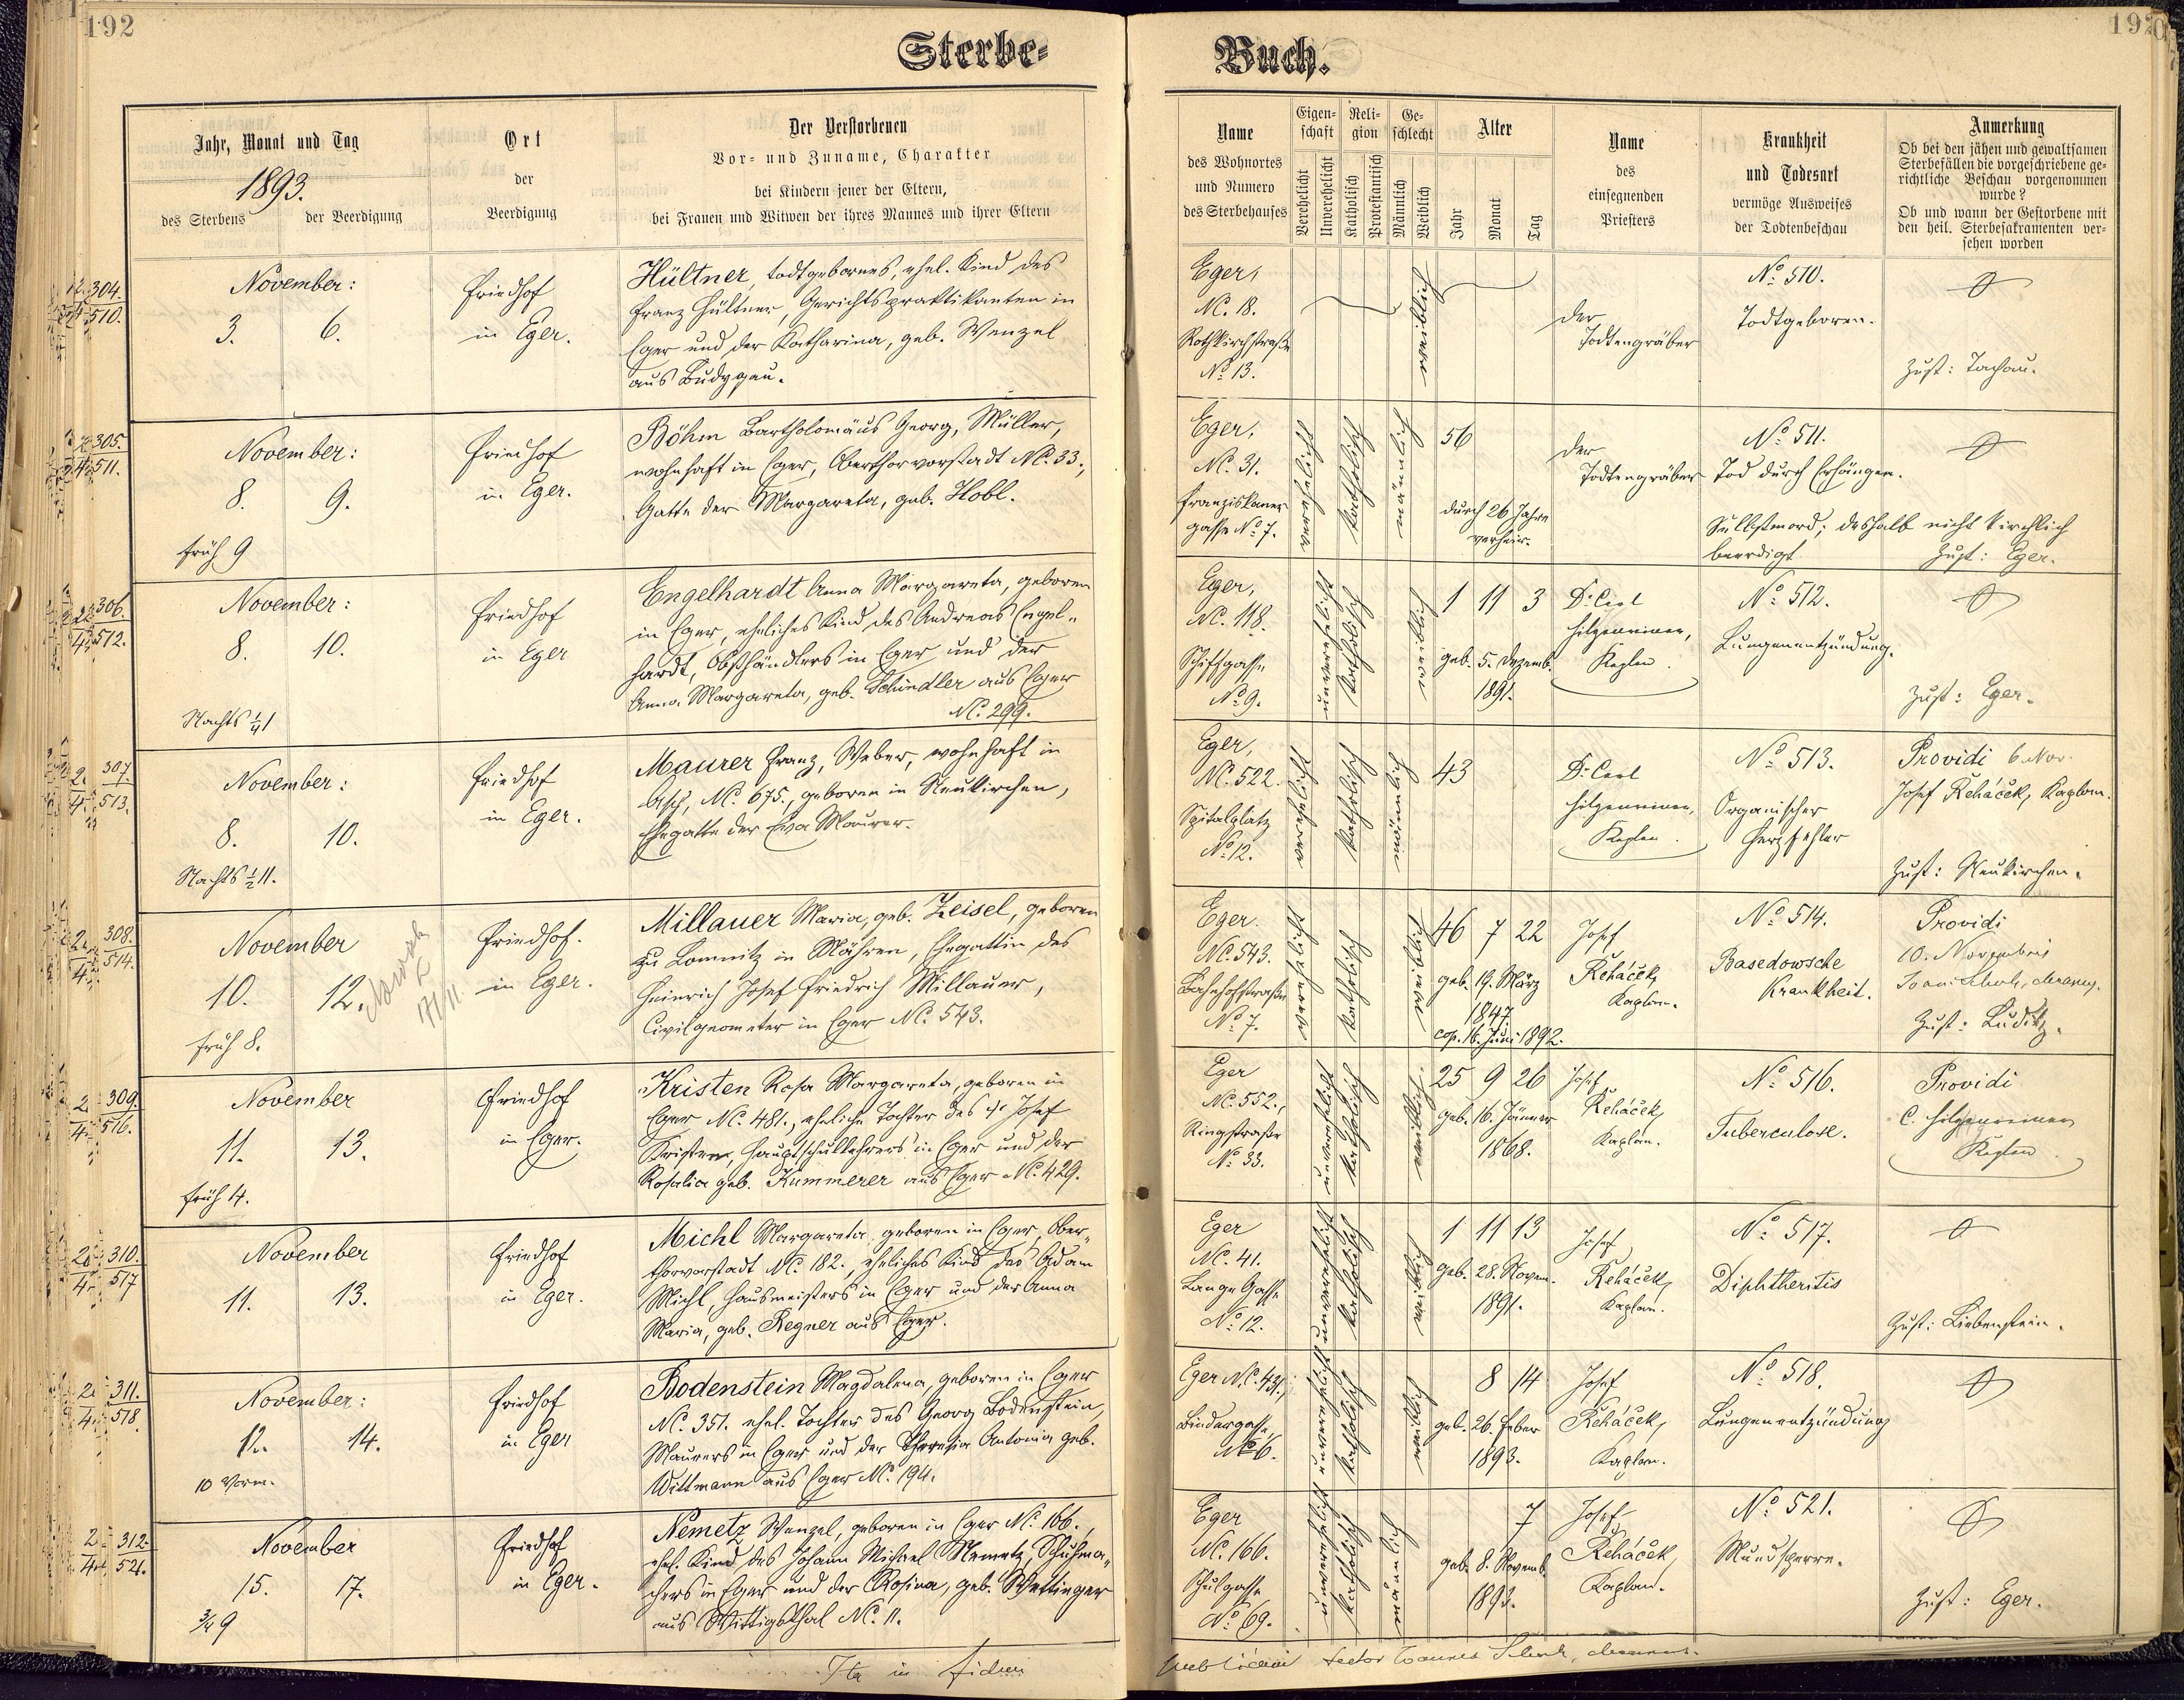 192
192
Sterbe-
Buch.
Jahr, Monat und Tag
1893.
des Sterbens
der Beerdigung
Ort
der
Beerdigung
Der Verstorbenen
Vor- und Zuname, Charakter
bei Kindern jener der Eltern,
bei Frauen und Witwen der ihres Mannes und ihrer Eltern
Name
des Wohnortes
und Numero
des Sterbehauses
Eigen-
schaft
Verehelicht
Unverehelicht
Reli-
gion
Katholisch
Protestantisch
Ge-
schlecht
Männlich
Weiblich
Alter
Jahr
Monat
Tag
Name
des
einsegnenden
Priesters
Krankheit
und Todesart
vermöge Ausweises
der Todtenbeschau
Anmerkung
Ob bei den jähen und gewaltsamen
Sterbefällen die vorgeschriebene ge-
richtliche Beschau vorgenommen
wurde?
Ob und wann der Gestorbene mit
den heil. Sterbesakramenten ver-
sehen worden
304.
510.
November:
3. 6.
Friedhof
in Eger.
Hültner, todtgebornes, ehel. Kind des
Franz Hültner, Gerichtspraktikanten in
Eger und der Katharina, geb. Wenzel
aus
Eger,
NC. 18.
Rothkirchstraße
No. 13.
weiblich
der
Todtengräber
No. 510.
Todtgeboren.
Zust: Tachau.
305.
511.
November:
8. 9.
früh 9
Friedhof
in Eger.
Böhm Bartholomäus Georg, Müller,
wohnhaft in Eger, Oberthorvorstadt NC. 33.,
Gatte der Margareta, geb. Hobl.
Eger,
NC. 31.
Franziskaner
gasse No. 7.
verehelicht
katholisch
männlich
56
durch 26 Jahre
verheir.
der
Todtengräber
No. 511.
Tod durch Erhängen.
Selbstmord; deshalb nicht kirchlich
beerdigt
Zust: Eger.
306.
512.
November:
8. 10.
Nachts ¼1
Friedhof
in Eger
Engelhardt Anna Margareta, geboren
in Eger, eheliches Kind des Andreas Engel-
hardt, Obsthändlers in Eger und der
Anna Margareta, geb. Schindler aus Eger
NC. 299.
Eger,
NC. 118.
Schiffgasse
No. 9.
unverehelicht
katholisch
weiblich
1 11 3
geb. 5. Dezemb.
1891.
D: Carl
Hilgenreiner,
Kaplan.
No. 512.
Lungenentzündung.
Zust: Eger.
307.
513.
November:
8. 10.
Nachts ½11.
Friedhof
in Eger.
Maurer Franz, Weber, wohnhaft in
Asch, NC. 675., geboren in Neukirchen,
Ehegatte der Eva Maurer.
Eger,
NC. 522.
Spitalplatz
No. 12.
verehelicht
katholisch
männlich
43
D: Carl
Hilgenreiner,
Kaplan.
No. 513.
Organischer
Herzfehler
Providi 6. Nov.
Josef Řeháček, Kaplan.
Zust: Neukirchen.
308.
514.
November
10. 12.
früh 8.
17/11.
Friedhof.
in Eger.
Millauer Maria, geb. Zeisel, geboren
zu Lomnitz in Mähren, Ehegattin des
Heinrich Josef Friedrich Millauer,
Civilgeometer in Eger NC. 543.
Eger.
NC. 543.
Bahnhofstraße
No. 7.
verehelicht
katholisch
weiblich
46 7 22
geb. 19. März
1847
cop. 16. Juni 1892.
Josef
Řeháček,
Kaplan.
No. 514.
Basedowsche
Krankheit.
Providi
10. Novembris
Zust: Luditz.
309.
516.
November
11. 13.
früh 4.
Friedhof
in Eger.
Kristen Rosa Margareta, geboren in
Eger NC. 481., eheliche Tochter des H. Josef
Kristen, Hauptschullehrers in Eger und der
Rosalia geb. Kummerer aus Eger NC. 429.
Eger
NC. 552.,
Ringstraße
No. 33.
unverehelicht
katholisch
weiblich.
25 9 26
geb. 16. Jänner
1868.
Josef
Řeháček,
Kaplan.
No. 516.
Tuberculose.
Providi
C. Hilgenreiner
Kaplan.
310.
517
November
11. 13.
Friedhof
in Eger.
Michl Margareta, geboren in Eger, Ober-
thorvorstadt NC. 182., eheliches Kind des Adam
Michl, Hausmeisters in Eger und der Anna
Maria, geb. Regner aus Eger.
Eger
NC. 41.
Lange Gasse
No. 12.
unverehelicht
katholisch
weiblich
1 11 13
geb. 28. Novem.
1891.
Josef
Řeháček,
Kaplan.
No. 517.
Diphtheritis
Zust: Liebenstein.
311.
518
November:
12. 14.
10 Vorm.
Friedhof
in Eger
Bodenstein Magdalena, geboren in Eger
NC. 351. ehel. Tochter des Georg Bodenstein,
Maurers in Eger und der Theresia Antonia geb.
Wittmann aus Eger NC. 194.
Eger NC. 431.
Bindergasse,
No 6.
unverehelicht
katholisch
weiblich
8 14
geb. 26. Feber
1893.
Josef
Řeháček,
Kaplan.
No. 518.
Lungenentzündung
312.
521.
November
15. 17.
¾ 9
Friedhof
in Eger.
Nemetz Wenzel, geboren in Eger NC. 166.,
ehel. Kind des Johann Michael Nemetz, Schuhma-
chers in Eger und der Rosina, geb. Wettinger
aus Wittigsthal NC. 11.
Eger
NC. 166.
Schulgasse
No. 69.
unverehelicht
katholisch
männlich
7
geb. 8. Novemb.
1893.
Josef
Řeháček,
Kaplan.
No. 521.
Mundsperre.
Zust: Eger.
Ita in fidem